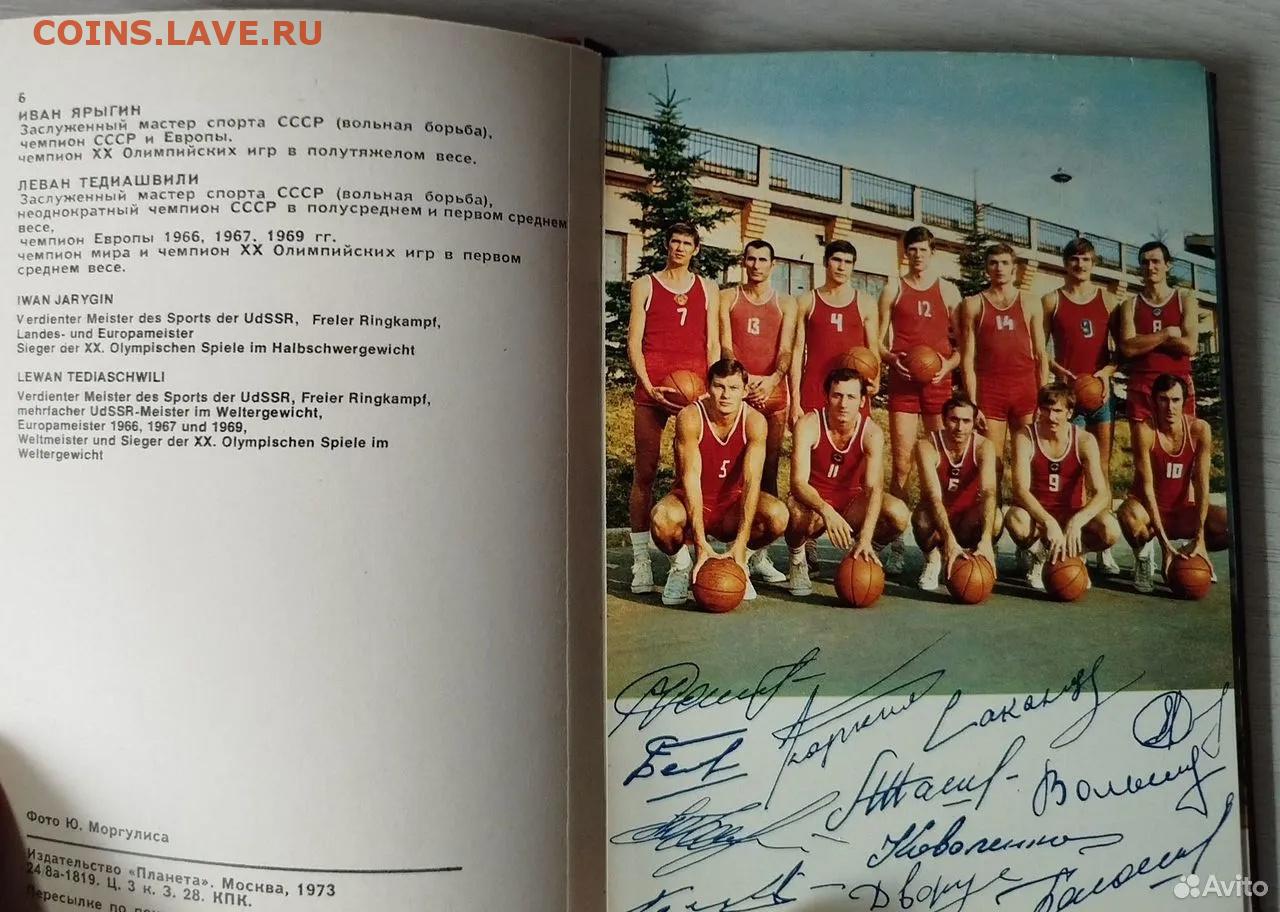 COINS.LAVE.RU
6
ИВАН ЯРЫГИН
Заслуженный мастер спорта СССР (вольная борьба),
чемпион СССР и Европы.
чемпион XX Олимпийских игр в полутяжелом весе.
ЛЕВАН ТЕДИАШВИЛИ
Заслуженный мастер спорта СССР (вольная борьба),
неоднократный чемпион СССР в полусреднем и первом среднем
весе,
чемпион Европы 1966, 1967, 1969 гг.
чемпион мира и чемпион XX Олимпийских игр в первом
среднем весе.
IWAN JARYGIN
Verdienter Meister des Sports der UdSSR, Freier Ringkampf,
Landes- und Europameister
Sieger der XX. Olympischen Spiele im Halbschwergewicht
LEWAN TEDIASCHWILI
Verdienter Meister des Sports der UdSSR, Freier Ringkampf,
mehrfacher UdSSR-Meister im Weltergewicht,
Europameister 1966, 1967 und 1969,
Weltmeister und Sieger der XX. Olympischen Spiele im
Weltergewicht
Фото Ю. Моргулиса
Издательство «Планета». Москва, 1973
24/8а-1819. Ц. 3 к. З. 28. КПК.
Пересылке по
7 13 4 12 14 9 8
5 11 6 9 10
Коваленко
Avito